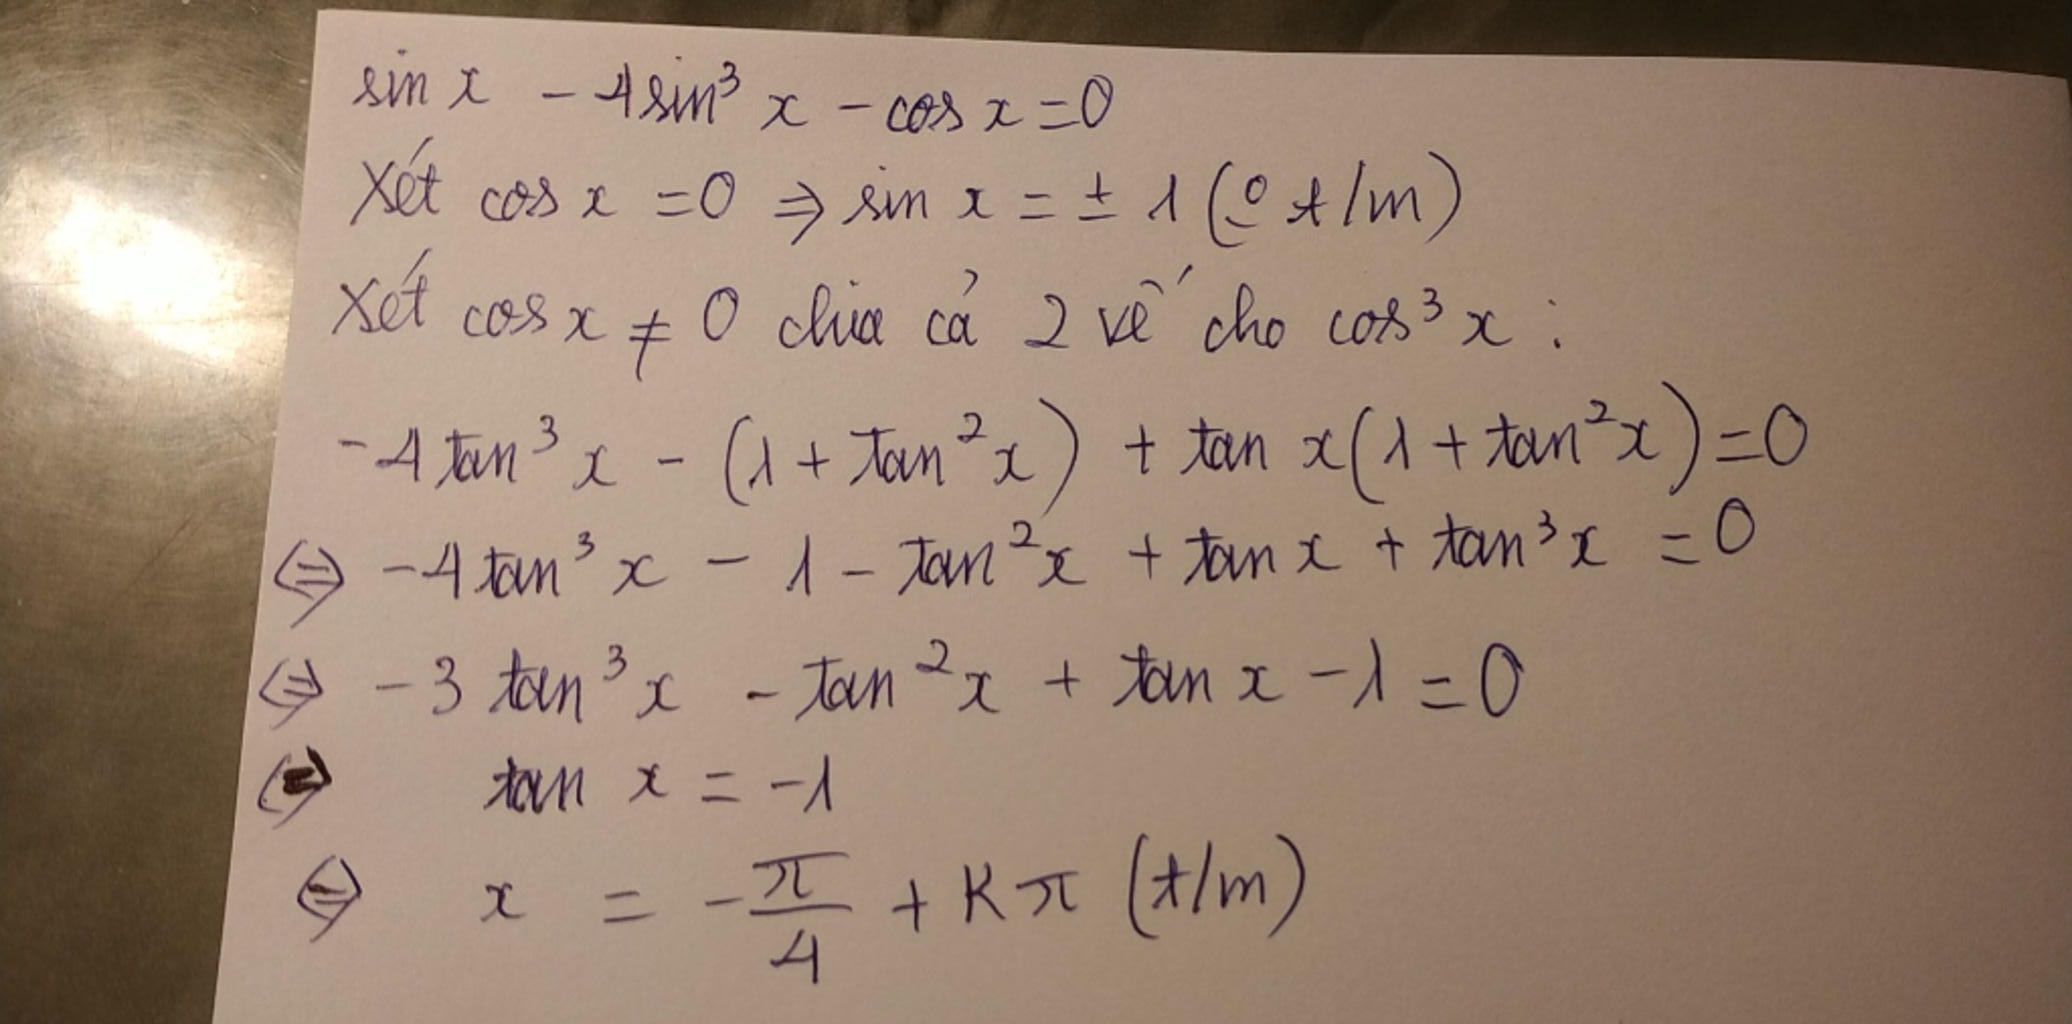 sin x - 4sin³ x - cos x = 0
Xét cos x = 0 ⇒ sin x = ± 1 (o t/m)
Xét cos x ≠ 0 chia cả 2 vế cho cos³ x :
-4 tan³ x - (1 + tan² x) + tan x (1 + tan² x) = 0
⇔ -4 tan³ x - 1 - tan² x + tan x + tan³ x = 0
⇔ -3 tan³ x - tan² x + tan x - 1 = 0
⇔ tan x = -1
⇔ x = -π/4 + Kπ (t/m)